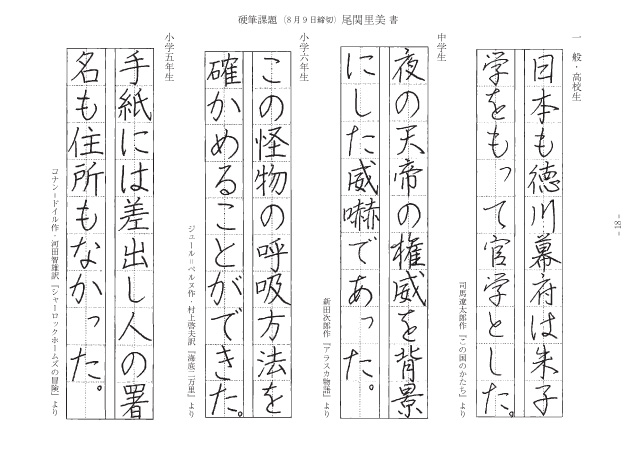 硬筆課題（8月9日締切）尾関里美 書
一般・高校生
日本も徳川幕府は朱子
学をもって官学とした。
司馬遼太郎作『この国のかたち』より
中学生
夜の天帝の権威を背景
にした威嚇であった。
新田次郎作『アラスカ物語』より
小学六年生
この怪物の呼吸方法を
確かめることができた。
ジュール＝ベルヌ作・村上啓夫訳『海底二万里』より
小学五年生
手紙には差出し人の署
名も住所もなかった。
コナン＝ドイル作・河田智雄訳『シャーロックホームズの冒険』より